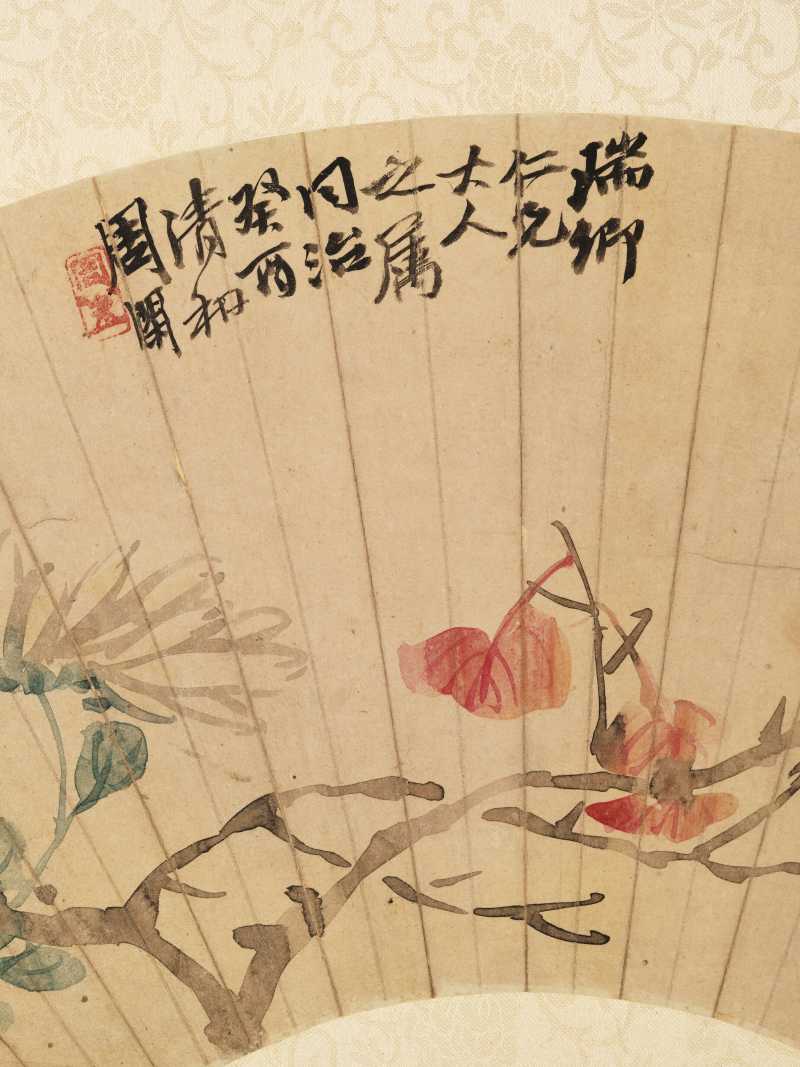 瑞卿
仁兄
大人
之属
同治
癸酉
清和
周閑